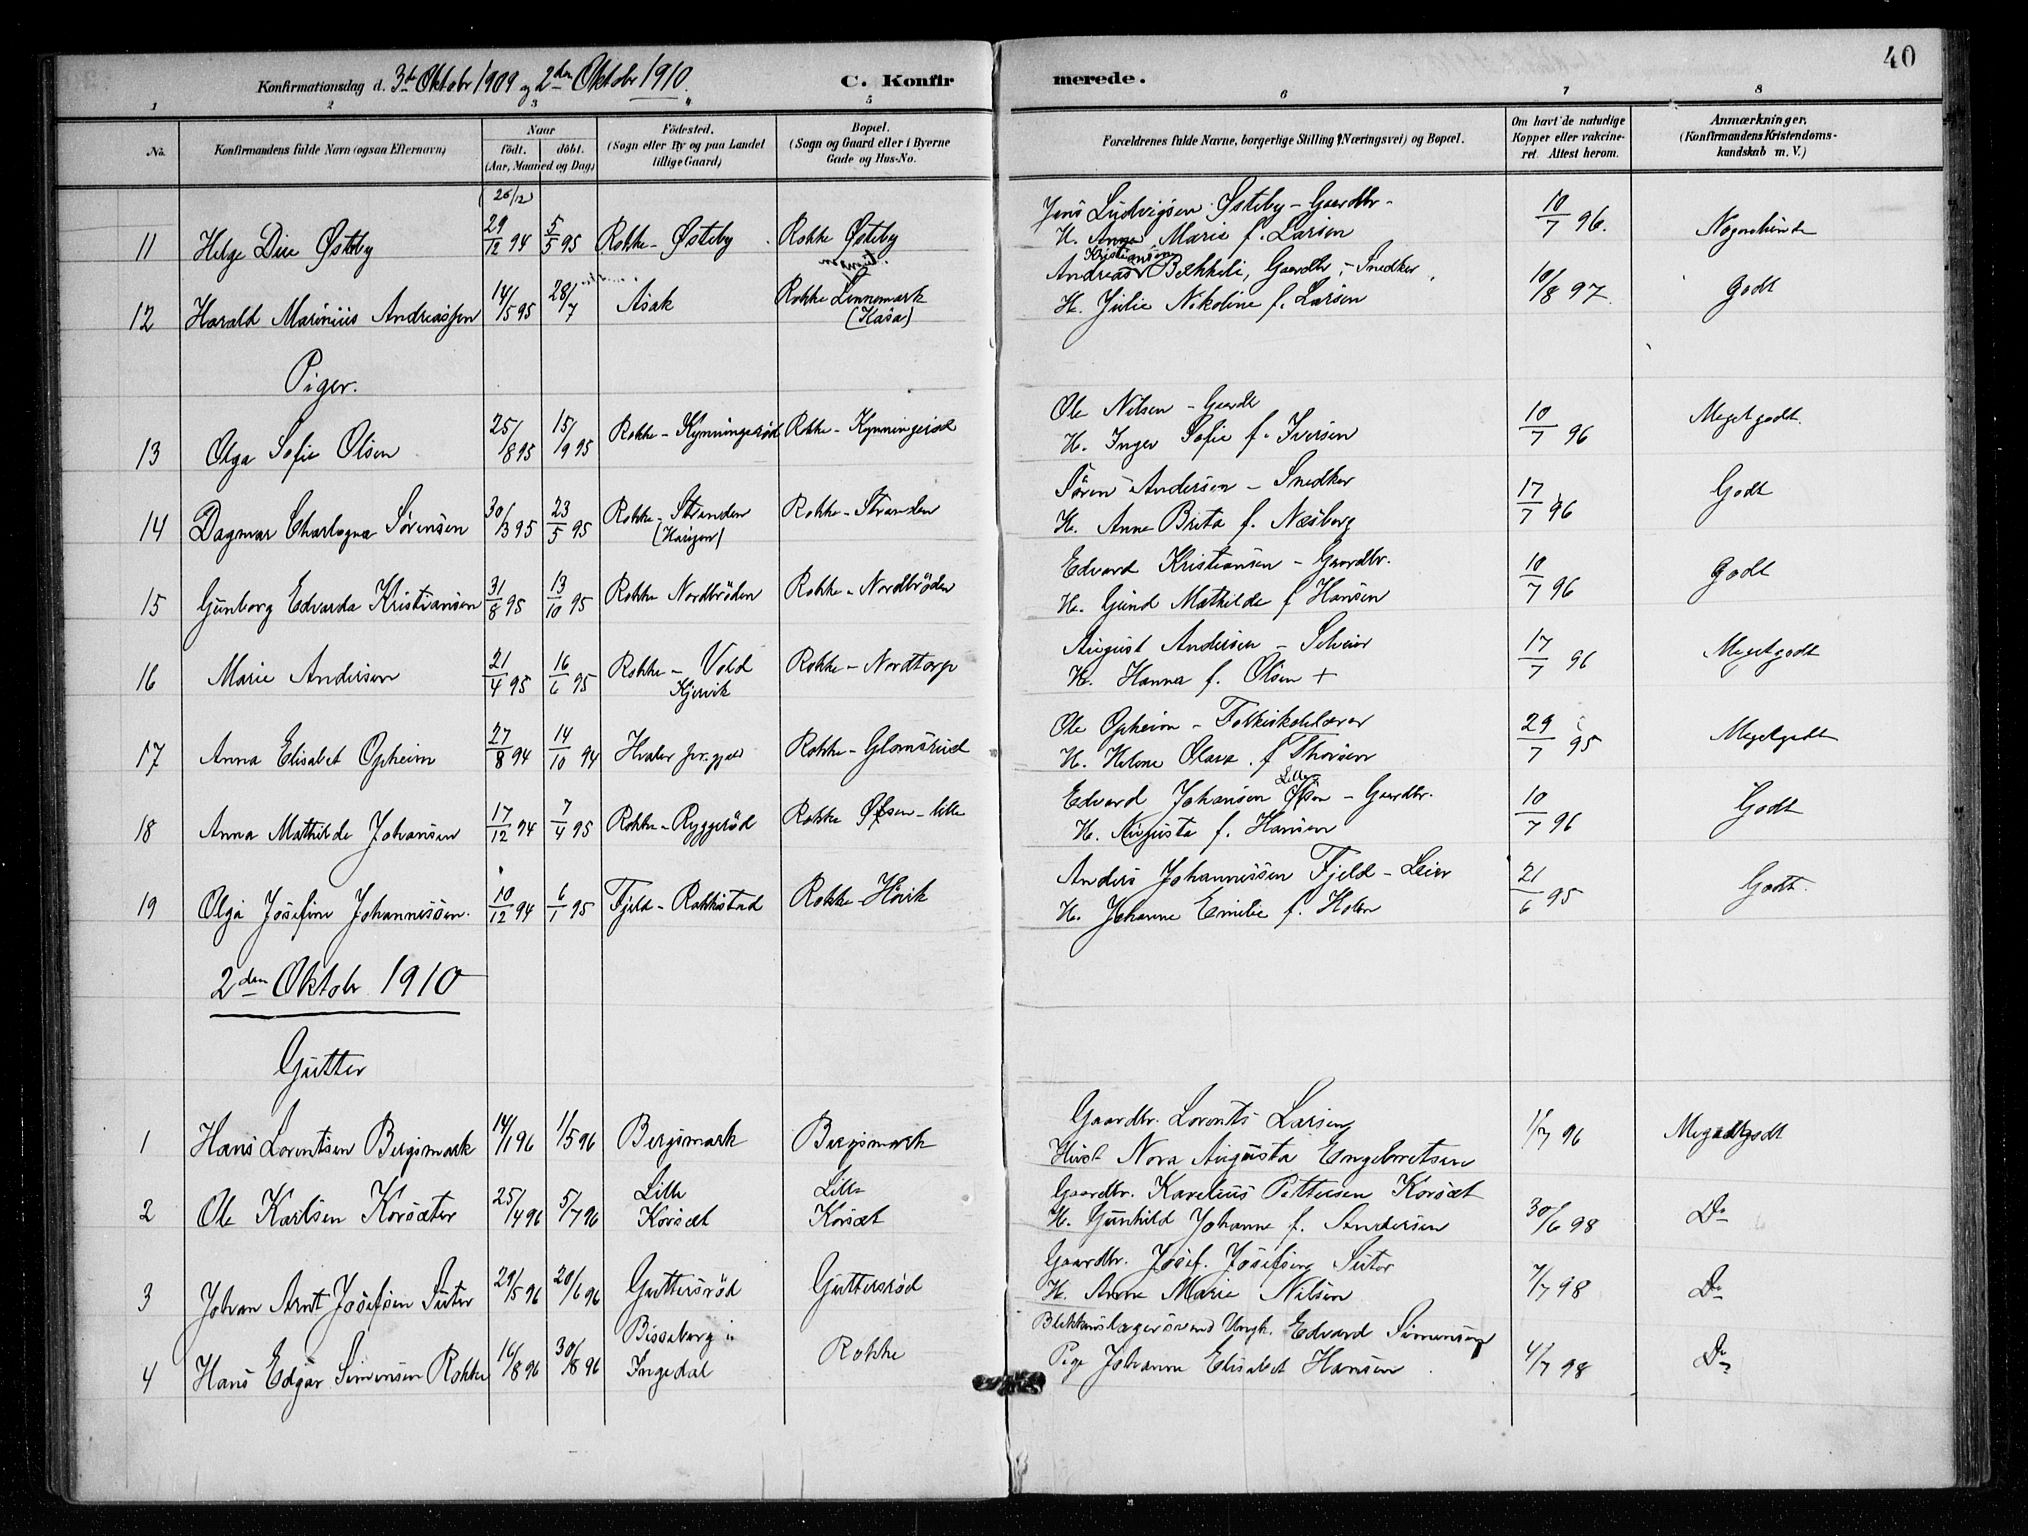 40
Konfirmationsdag d. 3de Oktobr 1909 og 2den Oktobr 1910.
C. Konfirmerede.
1 2 3 4 5 6 7 8
No. Konfirmandens fulde Navn (ogsaa Efternavn) Naar födt. döbt. (Aar, Maaned og Dag) Födested. (Sogn eller By og paa Landet tillige Gaard) Bopæl. (Sogn og Gaard eller i Byerne Gade og Hus-No. Forældrenes fulde Navne, borgerlige Stilling (Næringsvei) og Bopæl. Om havt de naturlige Kopper eller vakcineret. Attest herom. Anmærkninger. (Konfirmandens Kristendomskundskab m. V.)
(26/12)
Jens Ludvigsen Østeby - Gaardbr.
11 Helge Die Østeby 29/12 94 5/5 95 Rokke - Østeby Rokke Østeby H. Anna Marie f. Larsen 10/7 96. Nogenlunde
Kristiansen
Andreas Bekkeli, Gaardbr. - Snedker
12 Harald Marinius Andreassen 14/5 95 28/7 Asak Rokke Linnemark (Kasa) H. Julie Nikoline f. Larsen 10/8 97. Godt
Piger.
Ole Nilsen - Gaardbr
13 Olga Sofie Olsen 25/8 95 15/9 95 Rokke - Kynningsrød Rokke - Kynningsrød H. Inger Sofie f. Iversen 10/7 96 Meget godt.
Sören Andersen - Snedker
14 Dagmar Charlogna Sörensen 30/3 95 23/5 95 Rokke - Stranden Rokke - Stranden H. Anne Brita f. Næsborg 17/7 96 Godt
Edvard Kristiansen - Gaardbr.
15 Gunborg Edvarda Kristiansen 31/8 95 13/10 95 Rokke Nordbröden Rokke - Nordbröden H. Gund Mathilde f Hansen 10/7 96 Godt
August Andersen - Selveier
16 Marie Andersen 21/4 95 16/6 95 Rokke - Vold Kjervik Rokke - Nordtorp H. Hanna f. Olsen + 17/7 96 Meget godt
Ole Opheim - Folkeskolelærer
17 Anna Elisabet Opheim 27/8 94 14/10 94 Hvaler pr.gjeld Rokke - Glomsrud H. Helene Olava f Thorsen 29/7 95 Meget godt
Lille
Edvard Johansen Øsen - Gaardbr.
18 Anna Mathilde Johansen 17/12 94 7/4 95 Rokke - Ryggeröd Rokke Øsen - lille H. Augusta f. Hansen 10/7 96 Godt
Anders Johannessen Fjeld - Leier
19 Olga Josefine Johannessen. 10/12 94 6/1 95 Fjeld - Rokkestad Rokke - Hövik H. Johanne Emilie f. Holen 21/6 95 Godt.
2den Oktobr 1910
Gutter
Gaardbr. Lorents Larsen
1 Hans Lorentsen Bergsmark 14/1 96 1/5 96 Bergsmark Bergsmark Hust. Nora Augusta Engebretsen 1/7 96 Meget godt
Gaardbr. Karelius Pettersen Korsæt
2 Ole Karlsen Korsæter 25/4 96 5/7 96 Lille Korsæt Lille Korsæt H. Gunhild Johanne f. Andersen 30/6 98 Do
Gaardbr. Josef. Josefsen Suter
3 Johan Arnt Josefsen Suter 29/5 96 20/6 96 Guttersröd Guttersröd H. Anne Marie Nilsen 7/7 98 Do
Blikkenslagersvend Ungk. Edvard Simensen
4 Hans Edgar Simensen Rokke 16/8 96 30/8 96 Bisseberg i Ingedal Rokke Pige Johanne Elisabet Hansen 4/7 98 Do